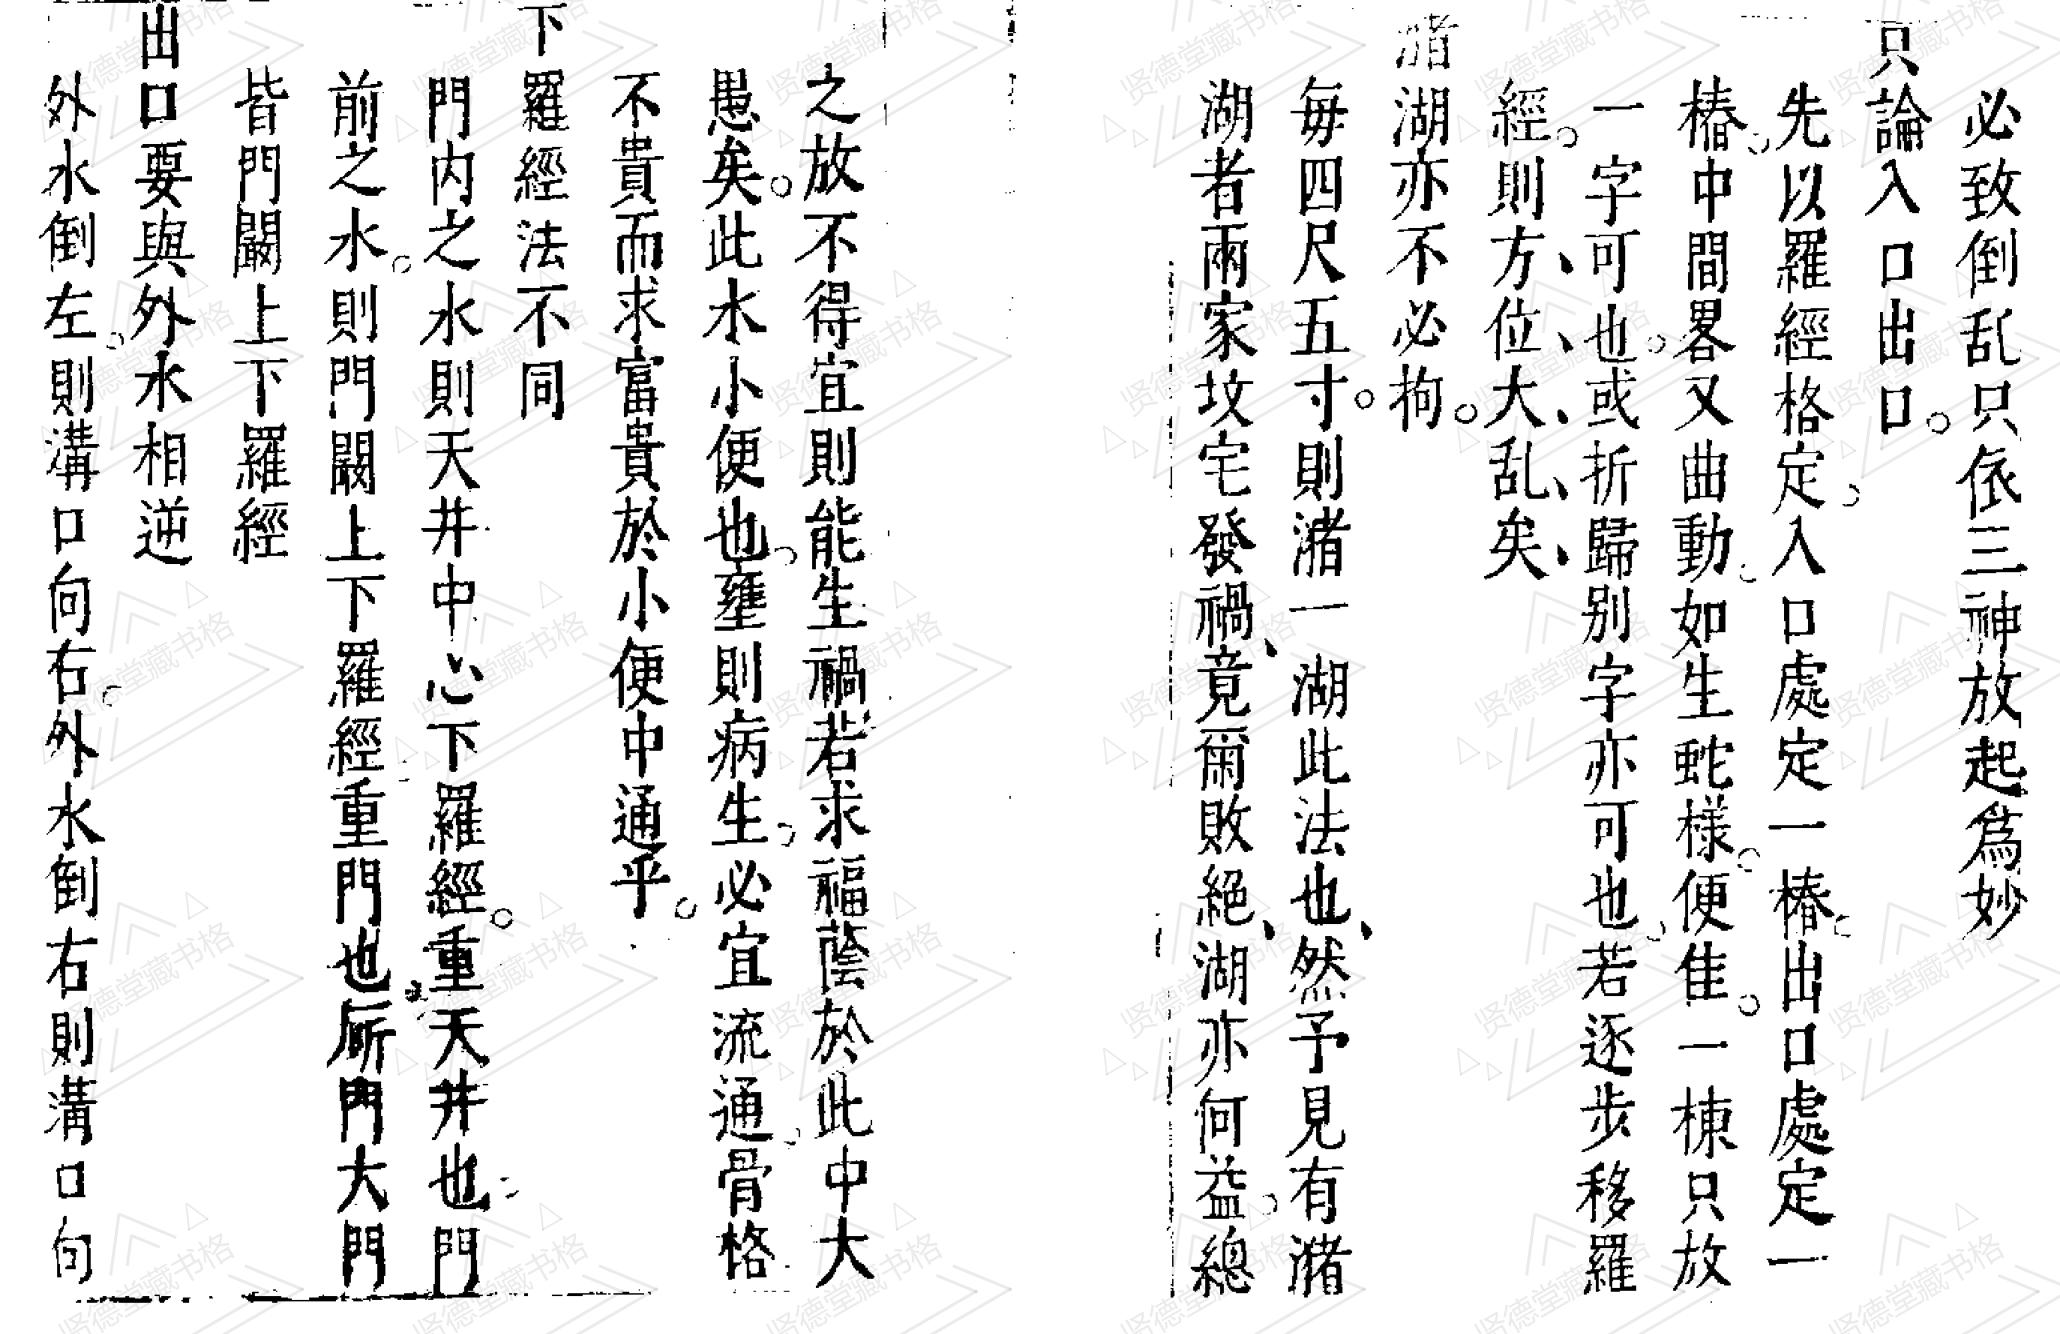 必致倒乱只依三神放起為妙
只論入口出口。
先以羅經格定。入口處定一樁。出口處定一
樁。中間畧又曲動。如生蛇樣。便佳。一棟只放
一字可也。或折歸别字亦可也。若逐步移羅
經。則方位大乱矣
瀦湖亦不必拘。
每四尺五寸。則瀦一湖此法也、然予見有瀦
湖者兩家坟宅發禍、竟爾敗絕、湖亦何益。總
之放不得宜則能生禍若求福蔭於此中大
愚矣。此水小便也。壅則病生。必宜流通。骨格
不貴而求富貴於小便中通乎。
下羅經法不同
門内之水則天井中心下羅經。重天井也。門
前之水。則門闞上下羅經重門也厮門大門
皆門闞上下羅經
出口要與外水相逆
外水倒左。則溝口向右。外水倒右則溝口向